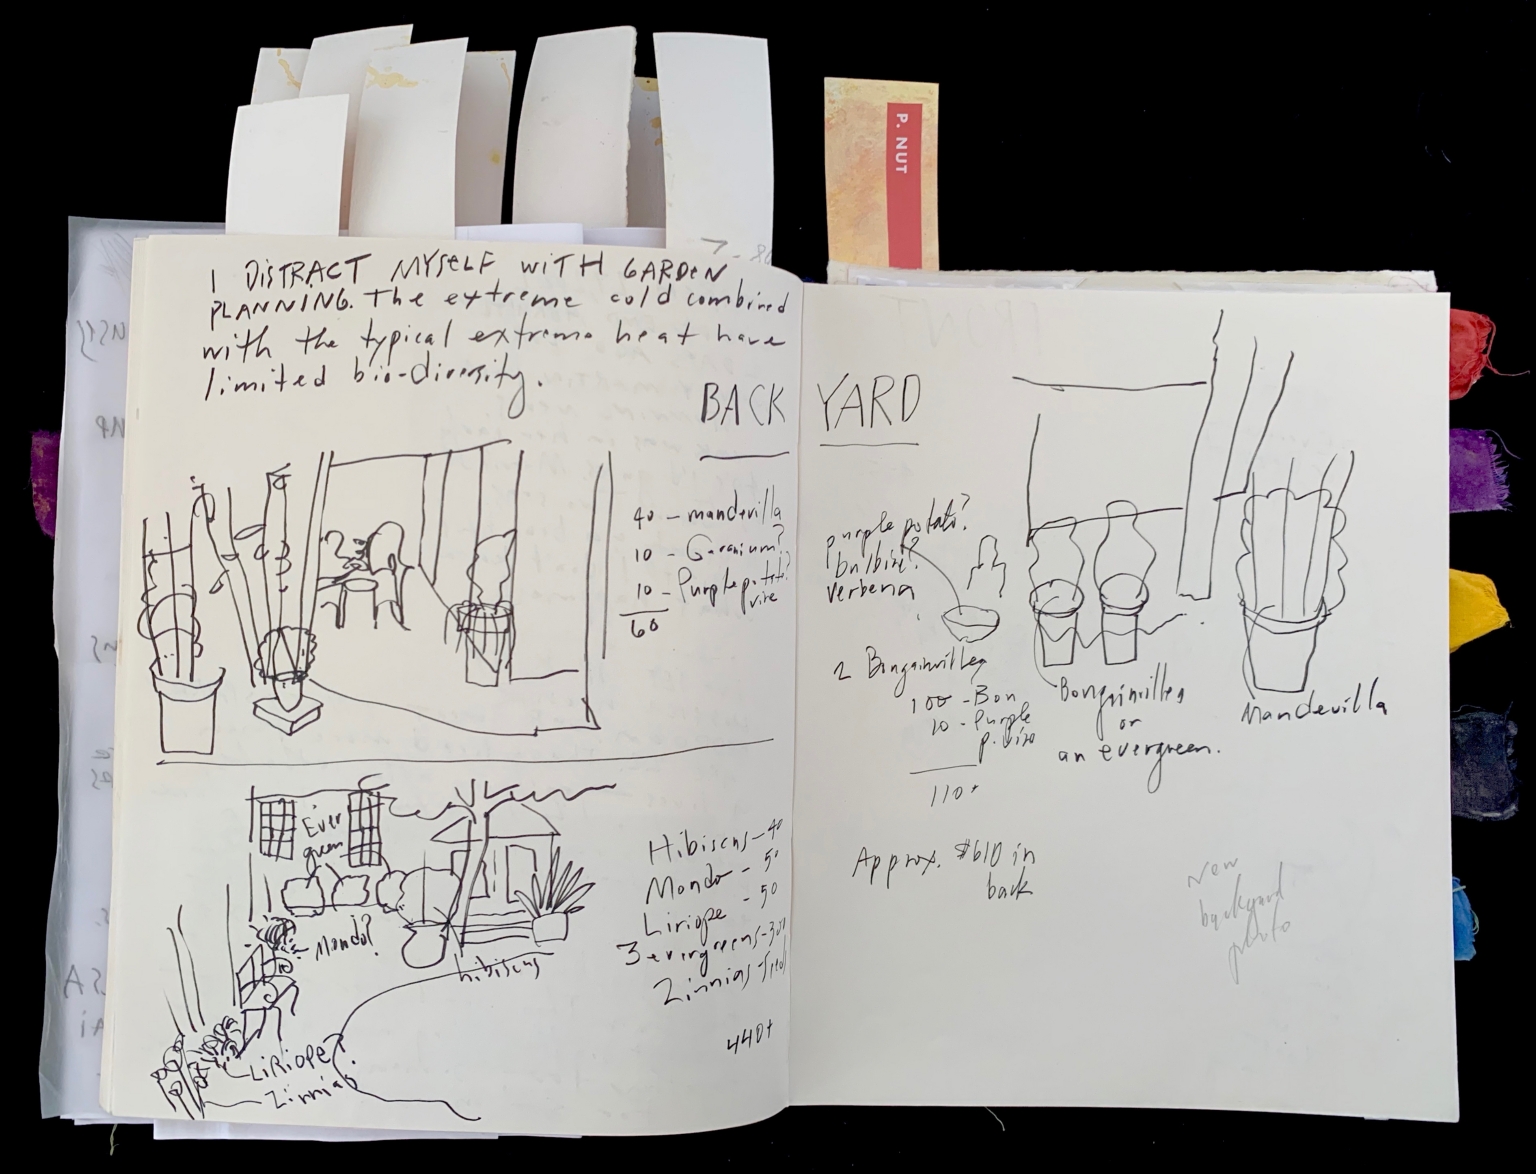 P. NUT
I DISTRACT MYSELF WITH GARDEN
PLANNING. The extreme cold combined
with the typical extreme heat have
limited bio-diversity.
BACK YARD
40 - mandevilla
10 - Geranium?
10 - Purple potato?
vine
60
Ever
green
Mondo?
hibiscus
LIRIOPE?
Zinnias
Hibiscus - 40
Mondo - 50
Liriope - 50
3 evergreens - 300
Zinnias - seeds
440+
purple potato?
bulbine?
verbena
2 Bougainvillea
100 - Bou
10 - Purple
p. vine
110+
Bougainvillea
or
an evergreen.
Mandevilla
Approx. $610 in
back
New
backyard
photo